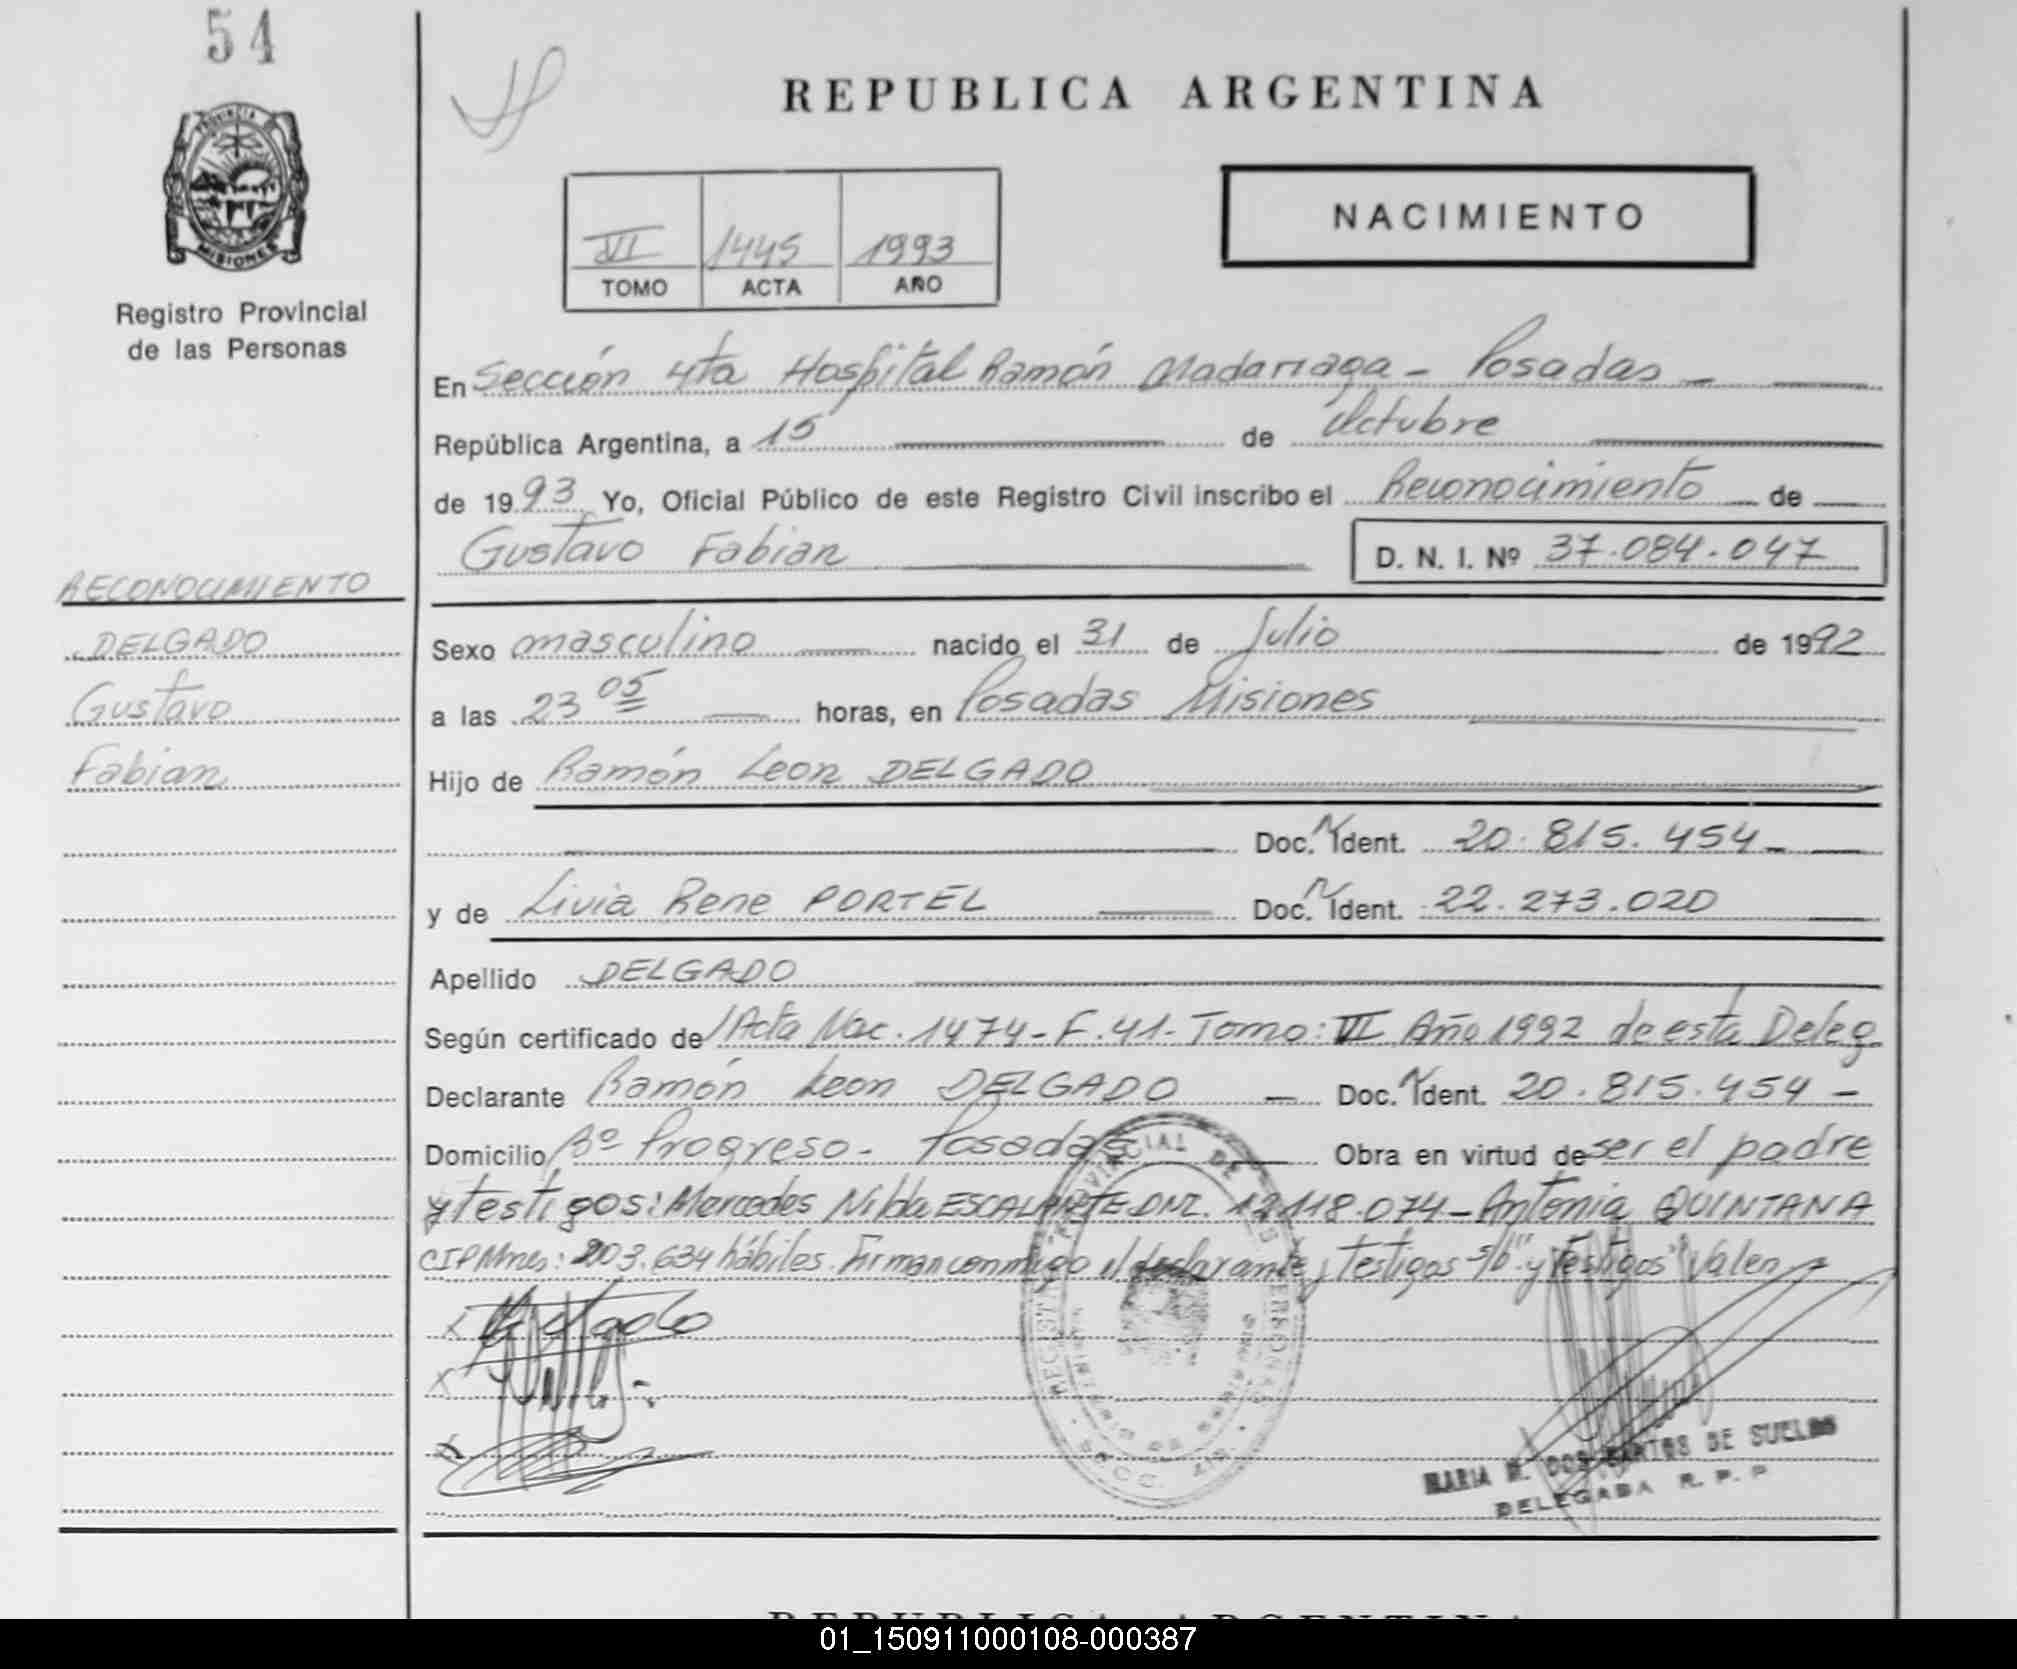 54
REPUBLICA ARGENTINA
PROVINCIA DE
MISIONES
NACIMIENTO
VI 1445 1993
TOMO ACTA AÑO
Registro Provincial
de las Personas
En Sección 4ta Hospital Ramón Madariaga - Posadas -
República Argentina, a 15 de Octubre
de 1993 Yo, Oficial Público de este Registro Civil inscribo el Reconocimiento de
Gustavo Fabian D. N. I. Nº 37.084.047
RECONOCIMIENTO
DELGADO
Gustavo
Fabian
Sexo masculino nacido el 31 de Julio de 1992
a las 23 05 horas, en Posadas Misiones
Hijo de Ramón Leon DELGADO
Doc. N Ident. 20.815.454 -
y de Livia Rene PORTEL Doc. N Ident. 22.273.020
Apellido DELGADO
Según certificado de Acta Nac. 1474 - F. 41 - Tomo: VI Año 1992 de esta Deleg.
Declarante Ramón Leon DELGADO - Doc. N Ident. 20.815.454 -
Domicilio Bº Progreso - Posadas Obra en virtud de ser el padre
y testigos: Mercedes Nilda ESCALANTE DNI. 12.118.074 - Antonia QUINTANA
CIPMnes: 203.634 hábiles. Firman conmigo el declarante y testigos s/b "y testigos" Valen
Delgado
MARIA M. DOS SANTOS DE SUELDO
DELEGADA R. P. P
REPUBLICA ARGENTINA
01_150911000108-000387